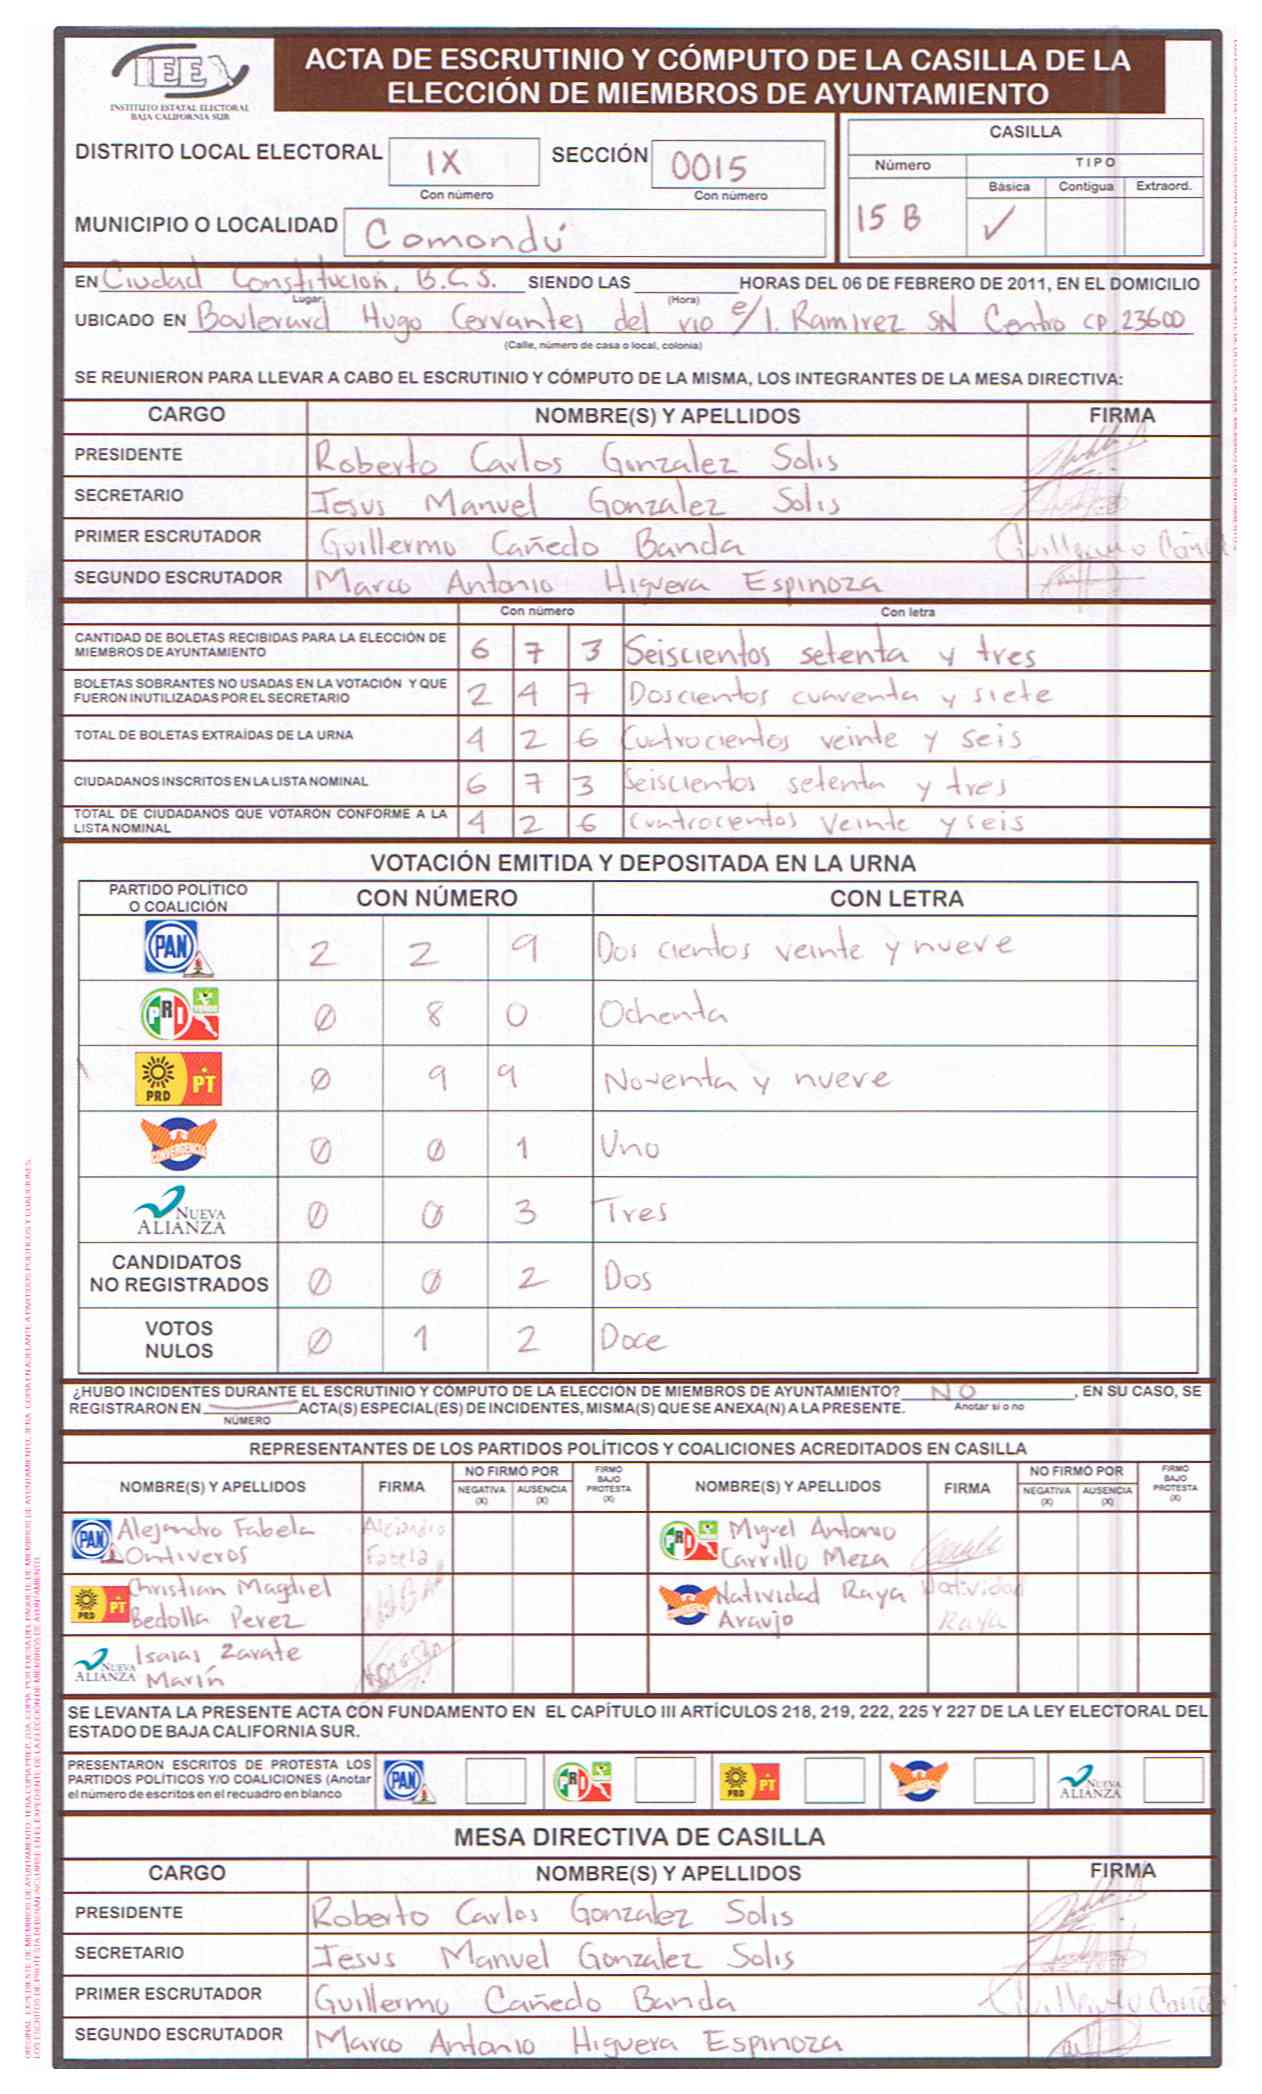 IEE
INSTITUTO ESTATAL ELECTORAL
BAJA CALIFORNIA SUR
ACTA DE ESCRUTINIO Y CÓMPUTO DE LA CASILLA DE LA
ELECCIÓN DE MIEMBROS DE AYUNTAMIENTO
DISTRITO LOCAL ELECTORAL IX SECCIÓN 0015
Con número Con número
MUNICIPIO O LOCALIDAD Comondú
CASILLA
Número TIPO
Básica Contigua Extraord.
15 B ✓
EN Ciudad Constitución, B.C.S. SIENDO LAS HORAS DEL 06 DE FEBRERO DE 2011, EN EL DOMICILIO
Lugar (Hora)
UBICADO EN Boulevard Hugo Cervantes del rio e/ I. Ramirez SN Centro CP. 23600
(Calle, número de casa o local, colonia)
SE REUNIERON PARA LLEVAR A CABO EL ESCRUTINIO Y CÓMPUTO DE LA MISMA, LOS INTEGRANTES DE LA MESA DIRECTIVA:
CARGO NOMBRE(S) Y APELLIDOS FIRMA
PRESIDENTE Roberto Carlos Gonzalez Solis
SECRETARIO Jesus Manuel Gonzalez Solis
PRIMER ESCRUTADOR Guillermo Cañedo Banda Guillermo Cañe
SEGUNDO ESCRUTADOR Marco Antonio Higuera Espinoza
Con número Con letra
CANTIDAD DE BOLETAS RECIBIDAS PARA LA ELECCIÓN DE
MIEMBROS DE AYUNTAMIENTO 6 7 3 Seiscientos setenta y tres
BOLETAS SOBRANTES NO USADAS EN LA VOTACIÓN Y QUE
FUERON INUTILIZADAS POR EL SECRETARIO 2 4 7 Doscientos cuarenta y siete
TOTAL DE BOLETAS EXTRAÍDAS DE LA URNA 4 2 6 Cuatrocientos veinte y seis
CIUDADANOS INSCRITOS EN LA LISTA NOMINAL 6 7 3 Seiscientos setenta y tres
TOTAL DE CIUDADANOS QUE VOTARON CONFORME A LA
LISTA NOMINAL 4 2 6 Cuatrocientos veinte y seis
VOTACIÓN EMITIDA Y DEPOSITADA EN LA URNA
PARTIDO POLÍTICO
O COALICIÓN CON NÚMERO CON LETRA
PAN 2 2 9 Dos cientos veinte y nueve
PRI VERDE 0 8 0 Ochenta
PRD PT 0 9 9 Noventa y nueve
CONVERGENCIA 0 0 1 Uno
NUEVA ALIANZA 0 0 3 Tres
CANDIDATOS
NO REGISTRADOS 0 0 2 Dos
VOTOS
NULOS 0 1 2 Doce
¿HUBO INCIDENTES DURANTE EL ESCRUTINIO Y CÓMPUTO DE LA ELECCIÓN DE MIEMBROS DE AYUNTAMIENTO? NO , EN SU CASO, SE
REGISTRARON EN ACTA(S) ESPECIAL(ES) DE INCIDENTES, MISMA(S) QUE SE ANEXA(N) A LA PRESENTE. Anotar sí o no
NÚMERO
REPRESENTANTES DE LOS PARTIDOS POLÍTICOS Y COALICIONES ACREDITADOS EN CASILLA
NOMBRE(S) Y APELLIDOS FIRMA NO FIRMÓ POR NEGATIVA (X) AUSENCIA (X) FIRMÓ BAJO PROTESTA (X) NOMBRE(S) Y APELLIDOS FIRMA NO FIRMÓ POR NEGATIVA (X) AUSENCIA (X) FIRMÓ BAJO PROTESTA (X)
PAN Alejandro Fabela Ontiveros Alejandro Fabela
PRI Miguel Antonio Carrillo Meza
PRD PT Christian Magdiel Bedolla Perez
CONVERGENCIA Natividad Raya Araujo Natividad Raya
NUEVA ALIANZA Isaias Zarate Marín
SE LEVANTA LA PRESENTE ACTA CON FUNDAMENTO EN EL CAPÍTULO III ARTÍCULOS 218, 219, 222, 225 Y 227 DE LA LEY ELECTORAL DEL
ESTADO DE BAJA CALIFORNIA SUR.
PRESENTARON ESCRITOS DE PROTESTA LOS
PARTIDOS POLÍTICOS Y/O COALICIONES (Anotar
el número de escritos en el recuadro en blanco
PAN PRI PRD PT CONVERGENCIA NUEVA ALIANZA
MESA DIRECTIVA DE CASILLA
CARGO NOMBRE(S) Y APELLIDOS FIRMA
PRESIDENTE Roberto Carlos Gonzalez Solis
SECRETARIO Jesus Manuel Gonzalez Solis
PRIMER ESCRUTADOR Guillermo Cañedo Banda Guillermo Cañe
SEGUNDO ESCRUTADOR Marco Antonio Higuera Espinoza